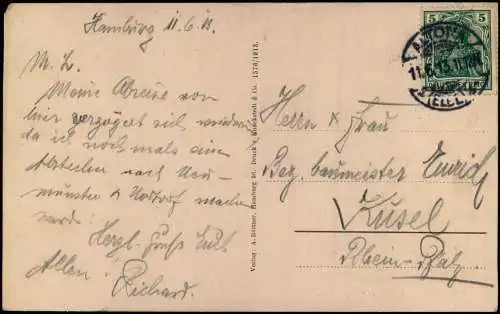 Hamburg 11.6.13.
M. L.
Meine Abreise von
hier verzögert sich
da ich nochmals einen
Abstecher nach Neu-
münster & Nortorf machen
werde.
Herzl. Gruß Euch
Allen!
Richard.
Verlag: A. Hamburg Druck v. & Co. 1570/1913.
5 5
ALTONA
11.6.13.
(ELBE)
Herrn & Frau
Bez. baumeister
Kusel
Rhein-Pfalz